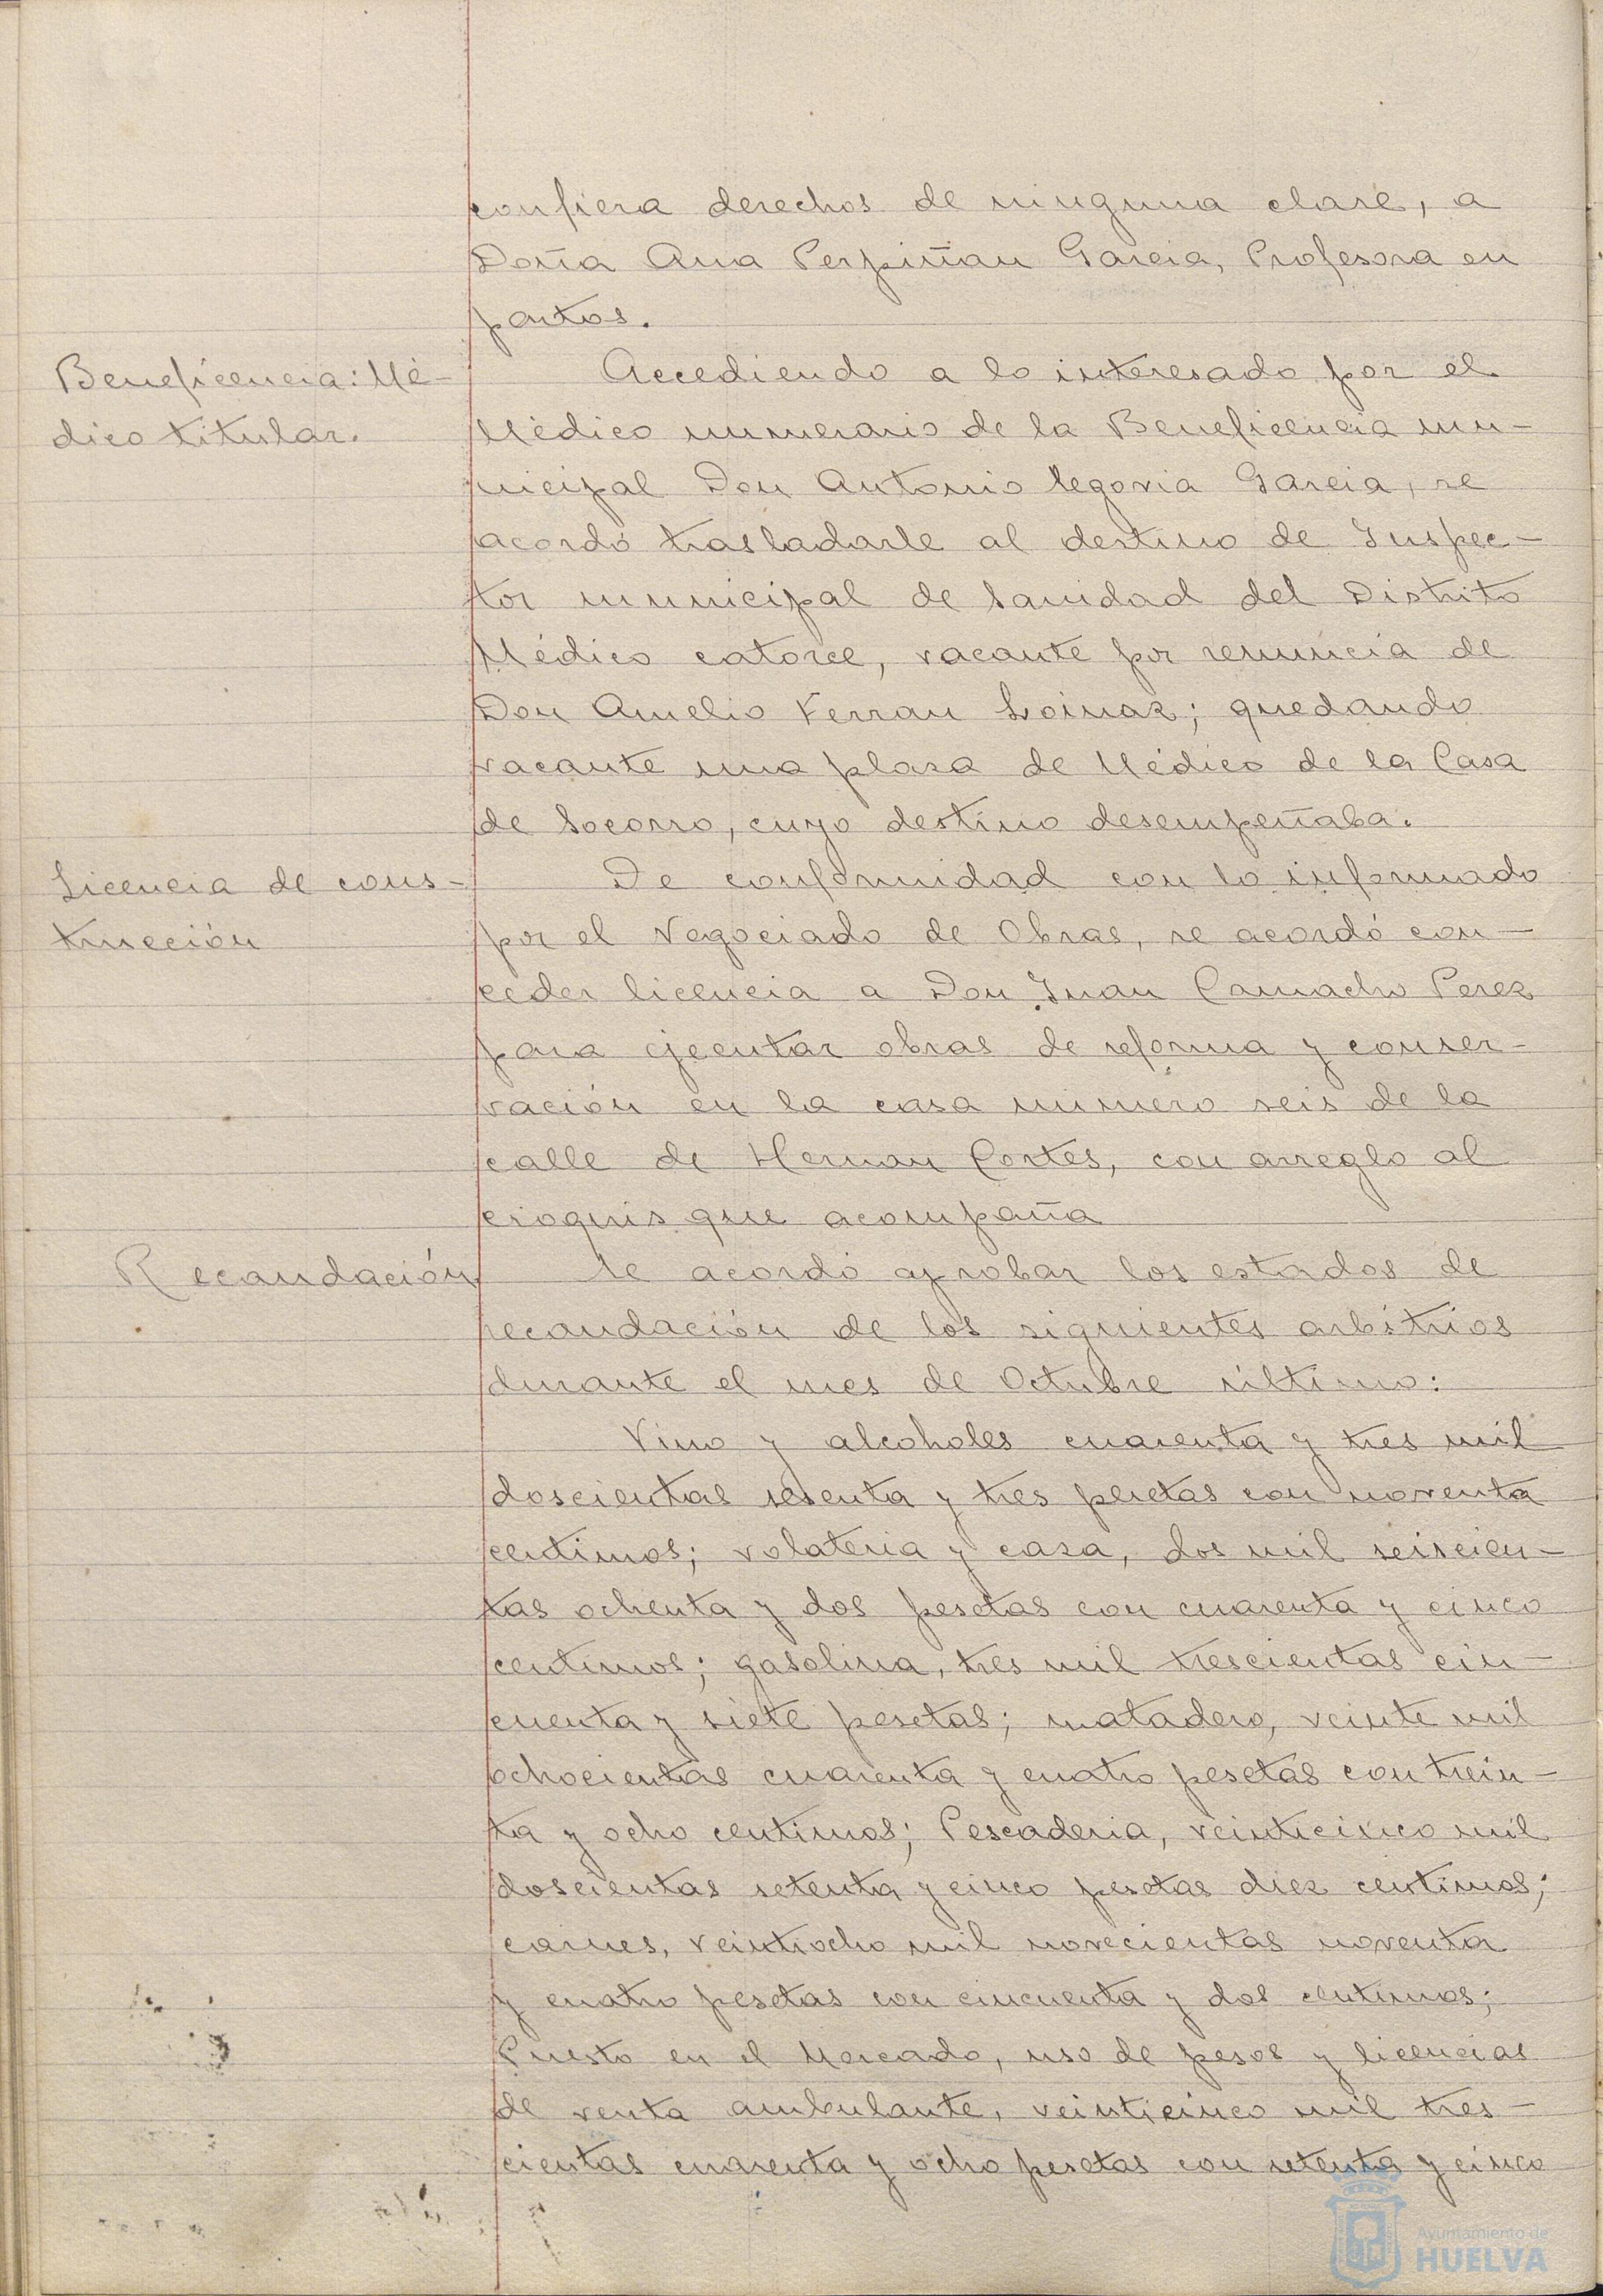 confiera derechos de ninguna clase, a
Doña Ana Perpiñan Garcia, Profesora en
partos.
Beneficencia: Mé-
dico titular.
Accediendo a lo interesado por el
Médico numerario de la Beneficencia mu-
nicipal Don Antonio Segovia Garcia, se
acordó trasladarle al destino de Inspec-
tor municipal de Sanidad del Distrito
Médico catorce, vacante por renuncia de
Don Amelio Ferran Loinaz; quedando
vacante una plaza de Médico de la Casa
de Socorro, cuyo destino desempeñaba.
Licencia de cons-
trucción
De conformidad con lo informado
por el Negociado de Obras, se acordó con-
ceder licencia a Don Juan Camacho Perez
para ejecutar obras de reforma y conser-
vación en la casa numero seis de la
calle de Hernan Cortés, con arreglo al
croquis que acompaña
Recaudación
Se acordó aprobar los estados de
recaudación de los siguientes arbitrios
durante el mes de Octubre último:
Vino y alcoholes cuarenta y tres mil
doscientas sesenta y tres pesetas con noventa
centimos; volateria y caza, dos mil seiscien-
tas ochenta y dos pesetas con cuarenta y cinco
centimos; gasolina, tres mil trescientas cin-
cuenta y siete pesetas; matadero, veinte mil
ochocientas cuarenta y cuatro pesetas con trein-
ta y ocho centimos; Pescaderia, veinticinco mil
doscientas setenta y cinco pesetas diez centimos;
carnes, veintiocho mil novecientas noventa
y cuatro pesetas con cincuenta y dos centimos;
Puesto en el Mercado, uso de pesos y licencias
de venta ambulante, veinticinco mil tres-
cientas cuarenta y ocho pesetas con setenta y cinco
Ayuntamiento de
HUELVA